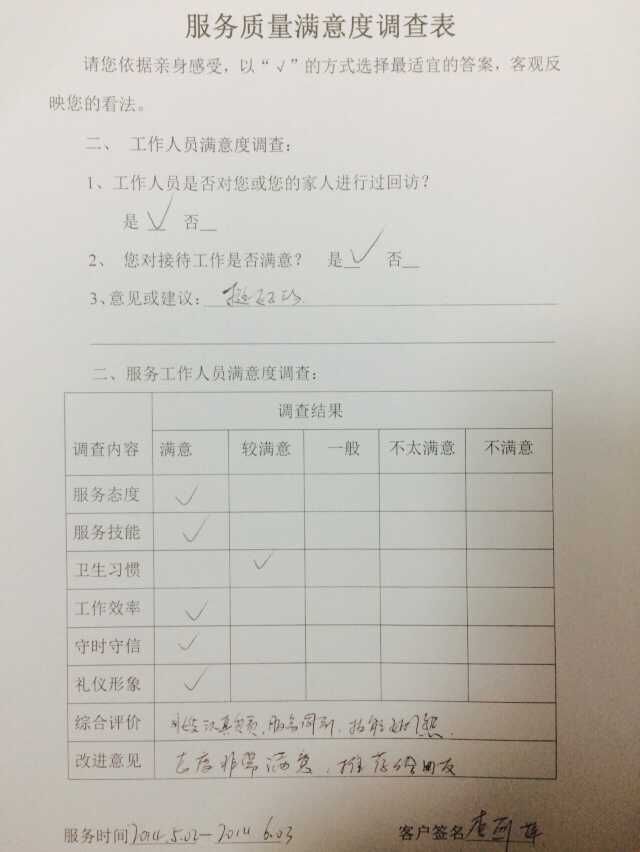 服务质量满意度调查表
请您依据亲身感受，以“√”的方式选择最适宜的答案，客观反
映您的看法。
二、 工作人员满意度调查：
1、工作人员是否对您或您的家人进行过回访？
是 √ 否__
2、 您对接待工作是否满意？ 是 √ 否__
3、意见或建议：挺好的
二、服务工作人员满意度调查：
调查结果
调查内容 满意 较满意 一般 不太满意 不满意
服务态度 √
服务技能 √
卫生习惯 √
工作效率 √
守时守信 √
礼仪形象 √
综合评价 认真负责，服务周到，
改进意见 非常满意，推荐给朋友
服务时间2014.5.02—2014.6.03 客户签名